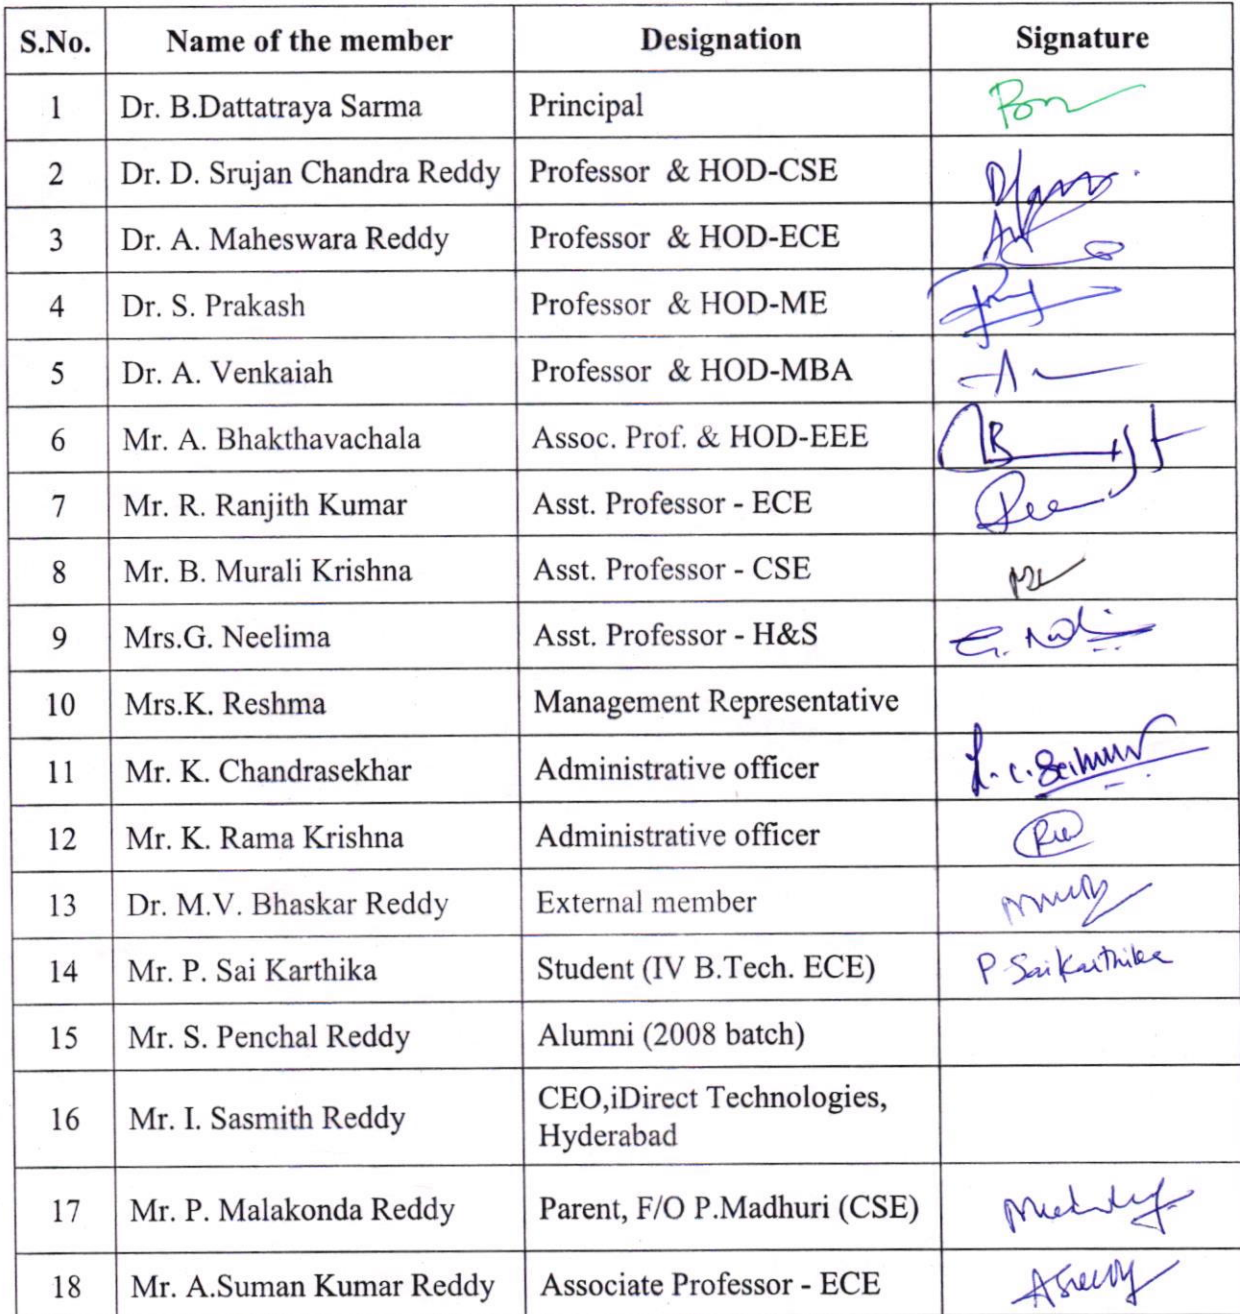 S.No. Name of the member Designation Signature
1 Dr. B.Dattatraya Sarma Principal
2 Dr. D. Srujan Chandra Reddy Professor & HOD-CSE
3 Dr. A. Maheswara Reddy Professor & HOD-ECE
4 Dr. S. Prakash Professor & HOD-ME
5 Dr. A. Venkaiah Professor & HOD-MBA
6 Mr. A. Bhakthavachala Assoc. Prof. & HOD-EEE
7 Mr. R. Ranjith Kumar Asst. Professor - ECE
8 Mr. B. Murali Krishna Asst. Professor - CSE
9 Mrs.G. Neelima Asst. Professor - H&S
10 Mrs.K. Reshma Management Representative
11 Mr. K. Chandrasekhar Administrative officer
12 Mr. K. Rama Krishna Administrative officer
13 Dr. M.V. Bhaskar Reddy External member
14 Mr. P. Sai Karthika Student (IV B.Tech. ECE) P Sai Karthika
15 Mr. S. Penchal Reddy Alumni (2008 batch)
16 Mr. I. Sasmith Reddy CEO,iDirect Technologies,
Hyderabad
17 Mr. P. Malakonda Reddy Parent, F/O P.Madhuri (CSE)
18 Mr. A.Suman Kumar Reddy Associate Professor - ECE